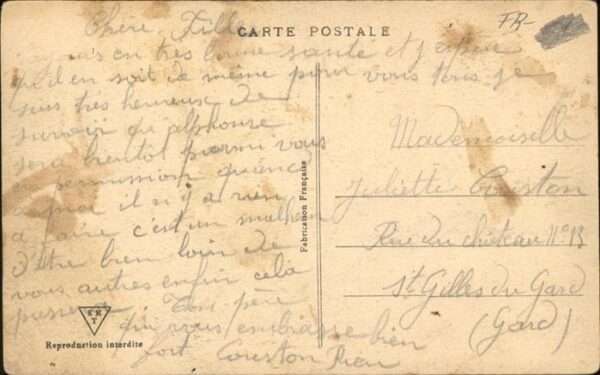 CARTE POSTALE
FR-
Chère Fille
suis en très bonne santé et j'espère
qu'il en soit de même pour vous tous je
suis très heureux de
savoir qu'alphonse
sera bientôt parmi vous
en permission quand
a moi il n'y a rien
a faire c'est un malheur
d'être bien loin de
vous autres enfin cela
passera
Ton père
qui vous embrasse bien
fort Courton
Mademoiselle
Juliette Courton
Rue du château N° 13
St Gilles du Gard
(Gard)
Fabrication Française
Reproduction interdite